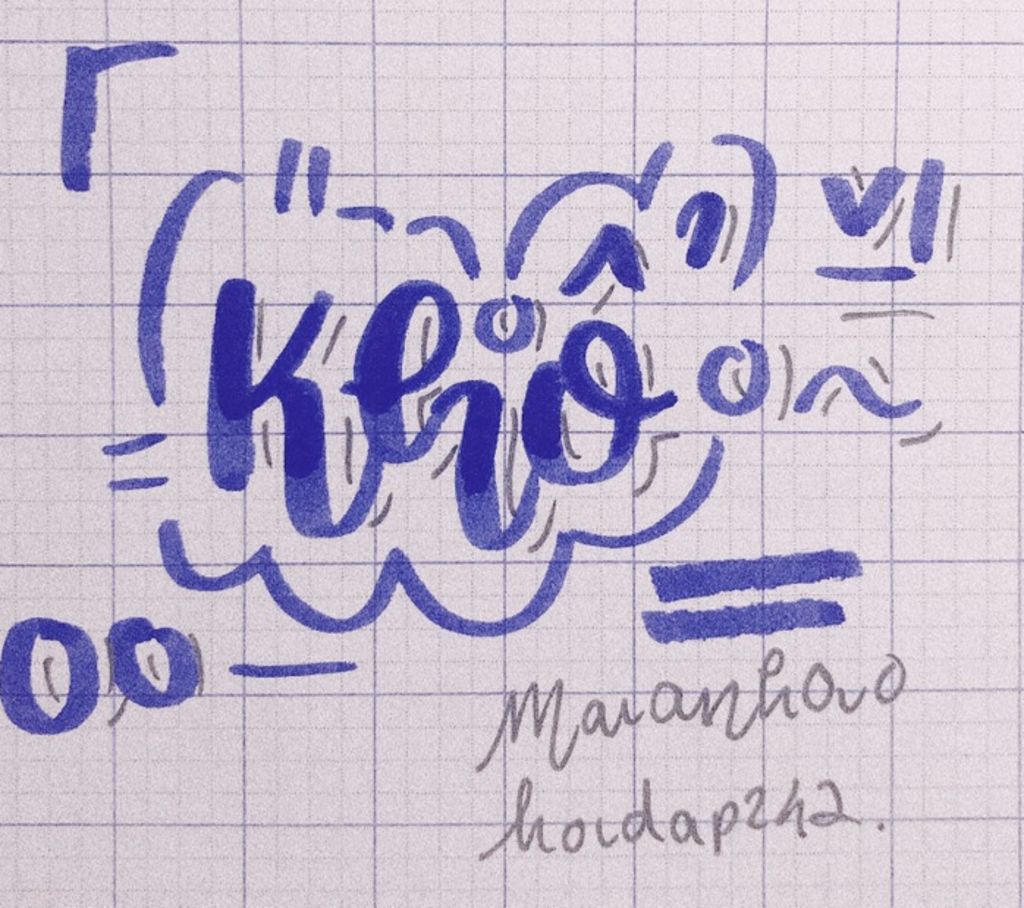 Khổ
Maianhhovo
hoidap242.